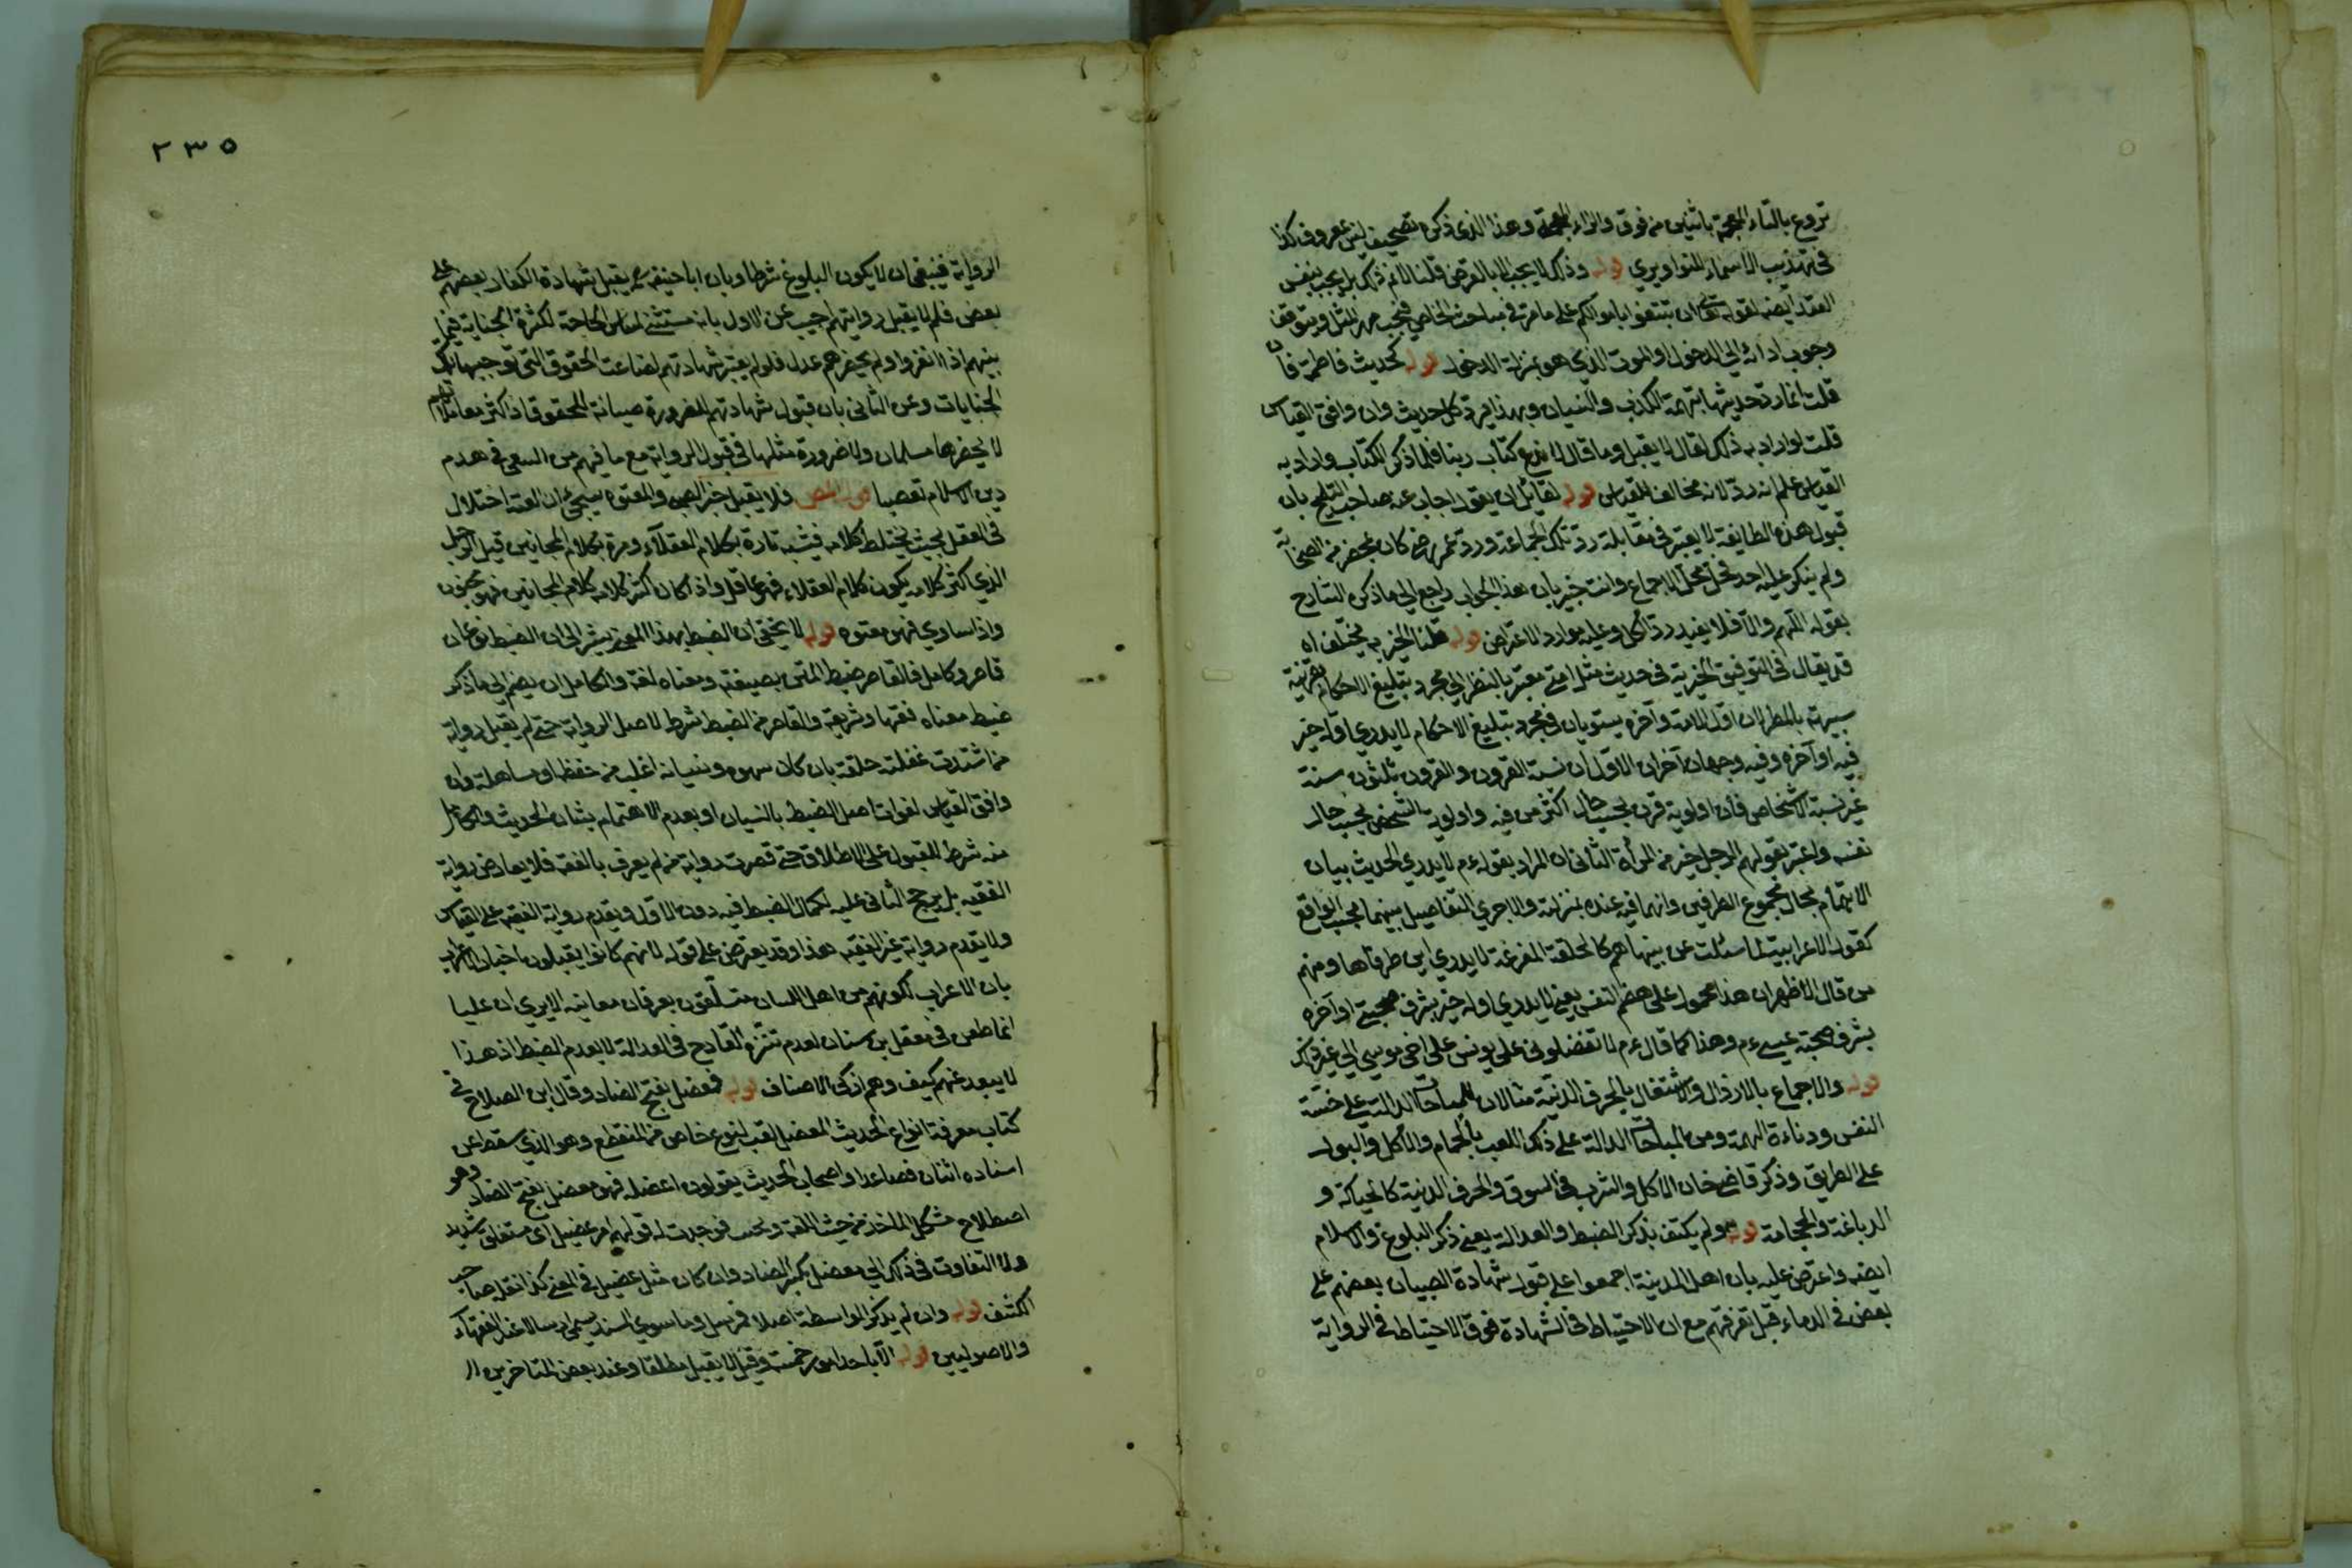 تروع بالتاء المعجمة باثنين من فوق والزاء المعجمة وهذا الذي ذكره تصحيف ليس بمعروف كذا
في تهذيب الاسماء للنواويري قوله وذلك لا يجب الا بالفرض قلنا لا نم ذلك بل يجب بنفس
العقد ايضه لقوله تع ان تبتغوا باموالكم على ما مر في مباحث الخاص فيجب مهر المثل ويتوقف
وجوب ادائه الى الدخول او الموت الذي هو بمنزلة الدخول قوله كحديث فاطمة فان
قلت انما رد حديثها بتهمة الكذب والنسيان وبهذا يرد كل حديث وان وافق القياس
قلت لو اراد به ذلك لقال لا يقبل وما قال لا ندع كتاب ربنا فلما ذكر الكتاب واراد به
القياس علم انه رد لانه مخالف للقياس قوله لقائل ان يقول اجاب عنه صاحب التلويح بان
قبول هذه الطايفة لا يعتبر في مقابلة رد تلك الجماعة ورد عمر رض كان بمحضر من الصحابة
ولم ينكر عليه احد فحل محل الاجماع وانت خبير بان هذا الجواب راجع الى ما ذكره الشارح
بقوله اللهم والا فلا يفيد رد الكل وعليه موارد الاعتراض قوله قلنا الخيرية يختلف اه
قد يقال في التوفيق الخيرية في حديث مثل امتي معتبر بالنظر الى مجرد تبليغ الاحكام بقرينة
تشبيهه بالمطر لان اول الامة وآخره يستويان في مجرد تبليغ الاحكام لا يدري اوله خير
فيه او آخره وفيه وجهان آخران الاول ان نسبة القرون والقرون ثلثون سنة
غير نسبة الاشخاص فان اولوية قرن بحسب حال اكثر من فيه واولوية الشخص بحسب حال
نفسه واعتبر بقولهم الرجل خير من المرأة الثاني ان المراد بقوله عم لا يدري الحديث بيان
الابتهام بحال مجموع الطرفين وانهما فيه عنده بمنزلة والاجري التفاصيل بينهما بحسب الواقع
كقول الاعرابية لما سئلت عن بينها هم كالحلقة المفرغة لا يدري اين طرفاها ومنهم
من قال الاظهر ان هذا محمول على هضم النفس يعني لا يدري اوله خير بشرف صحبتي او آخره
بشرف صحبة عيسى عم وهذا كما قال عم لا تفضلوني على يونس على اخي موسى الى غير ذلك
قوله والاجماع بالارذال والاشتغال بالحرف الدنيّة مثالان للمباحات الدالة على خسّة
النفس ودناءة الهمة ومن المباحات الدالة على ذلك اللعب بالحمام والاكل والبول
على الطريق وذكر قاضي خان الاكل والشرب في السوق والحرف الدنية كالحياكة و
الدباغة والحجامة قوله ولم يكتف بذكر الضبط والعدالة يعني ذكر البلوغ والاسلام
ايضه واعترض عليه بان اهل المدينة اجمعوا على قول شهادة الصبيان بعضهم على
بعض في الدماء قبل تفرقهم مع ان الاحتياط في الشهادة فوق الاحتياط في الرواية
٢٣٥
الرواية فينبغي ان لا يكون البلوغ شرطا وبان ابا حنيفه رح يقبل شهادة الكفار بعضهم على
بعض فلم لا يقبل روايتهم اجيب عن الاول بانه مستثنى لمساس الحاجة لكثرة الجناية فيما
بينهم اذا انفردوا ولم يحضرهم عدل فلو لم يعتبر شهادتهم لضاعت الحقوق التي توجبها تلك
الجنايات وعن الثاني بان قبول شهادتهم للضرورة صيانة للحقوق اذ اكثر معاملاتهم
لا يحضرها مسلمان ولا ضرورة مثلها في قبول الرواية مع ما فيهم من السعي في هدم
دين الاسلام تعصبا قوله المص فلا يقبل خبر الصبي والمعتوه سيجئ ان العته اختلال
في العقل بحيث يختلط كلامه فيشبه تارة بكلام العقلاء ومرة بكلام المجانين قيل الرجل
الذي اكثر كلامه يكون كلام العقلاء فهو عاقل واذا كان اكثر كلامه كلام المجانين فهو مجنون
واذا ساوي فهو معتوه قوله لا يخفى ان الضبط بهذا المعنى يشير الى ان الضبط نوعان
قاصر وكامل فالقاصر ضبط المتن بصيغته ومعناه لغة والكامل ان يضم الى ما ذكر
ضبط معناه فقها وشريعة والقاصر من الضبط شرط لاصل الرواية حتى لم يقبل رواية
من اشتدت غفلته خلقة بان كان سهوه ونسيانه اغلب من حفظه او مساهلة وان
وافق القياس لفوات اصل الضبط بالنسيان او بعدم الاهتمام بشان الحديث والكامل
منه شرط للقبول على الاطلاق حتى قصرت رواية من لم يعرف بالفقه فلا يعارض رواية
الفقيه بل يرجح الثاني عليه لكمال الضبط فيه دون الاول ويقدم رواية الفقيه على القياس
ولا يقدم رواية غير الفقيه هذا وقد يعترض على قوله لانهم كانوا يقبلون اخبار الاعراب
بان الاعراب لكونهم من اهل اللسان متسلّقون بعرفان معانيه الا يرى ان عليا
انما طعن في معقل بن سنان لعدم تنزه القادح في العدالة لا لعدم الضبط اذ هذا
لا يبعد عنهم كيف وهم اذكى الاصناف قوله فمعضل بفتح الضاد وقال ابن الصلاح في
كتاب معرفة انواع الحديث المعضل لقب لنوع خاص من المنقطع وهو الذي سقط عن
اسناده اثنان فصاعدا واصحاب الحديث يقولون اعضله فهو معضل بفتح الضاد وهو
اصطلاح مشكل المأخذ من حيث اللغة وبحثت فوجدت له قولهم امر عضيل اي مستغلق شديد
ولا التفاوت في ذلك الى معضل بكسر الضاد وان كان مثل عضيل في المعنى كذا نقل صاحب
الكشف قوله وان لم يذكر الواسطة اصلا فمرسل وما سوي المسند يسمى ارسالا عند الفقهاء
والاصوليين قوله الا باحد امور خمسة وقيل لا يقبل مطلقا وعند بعض المتاخرين